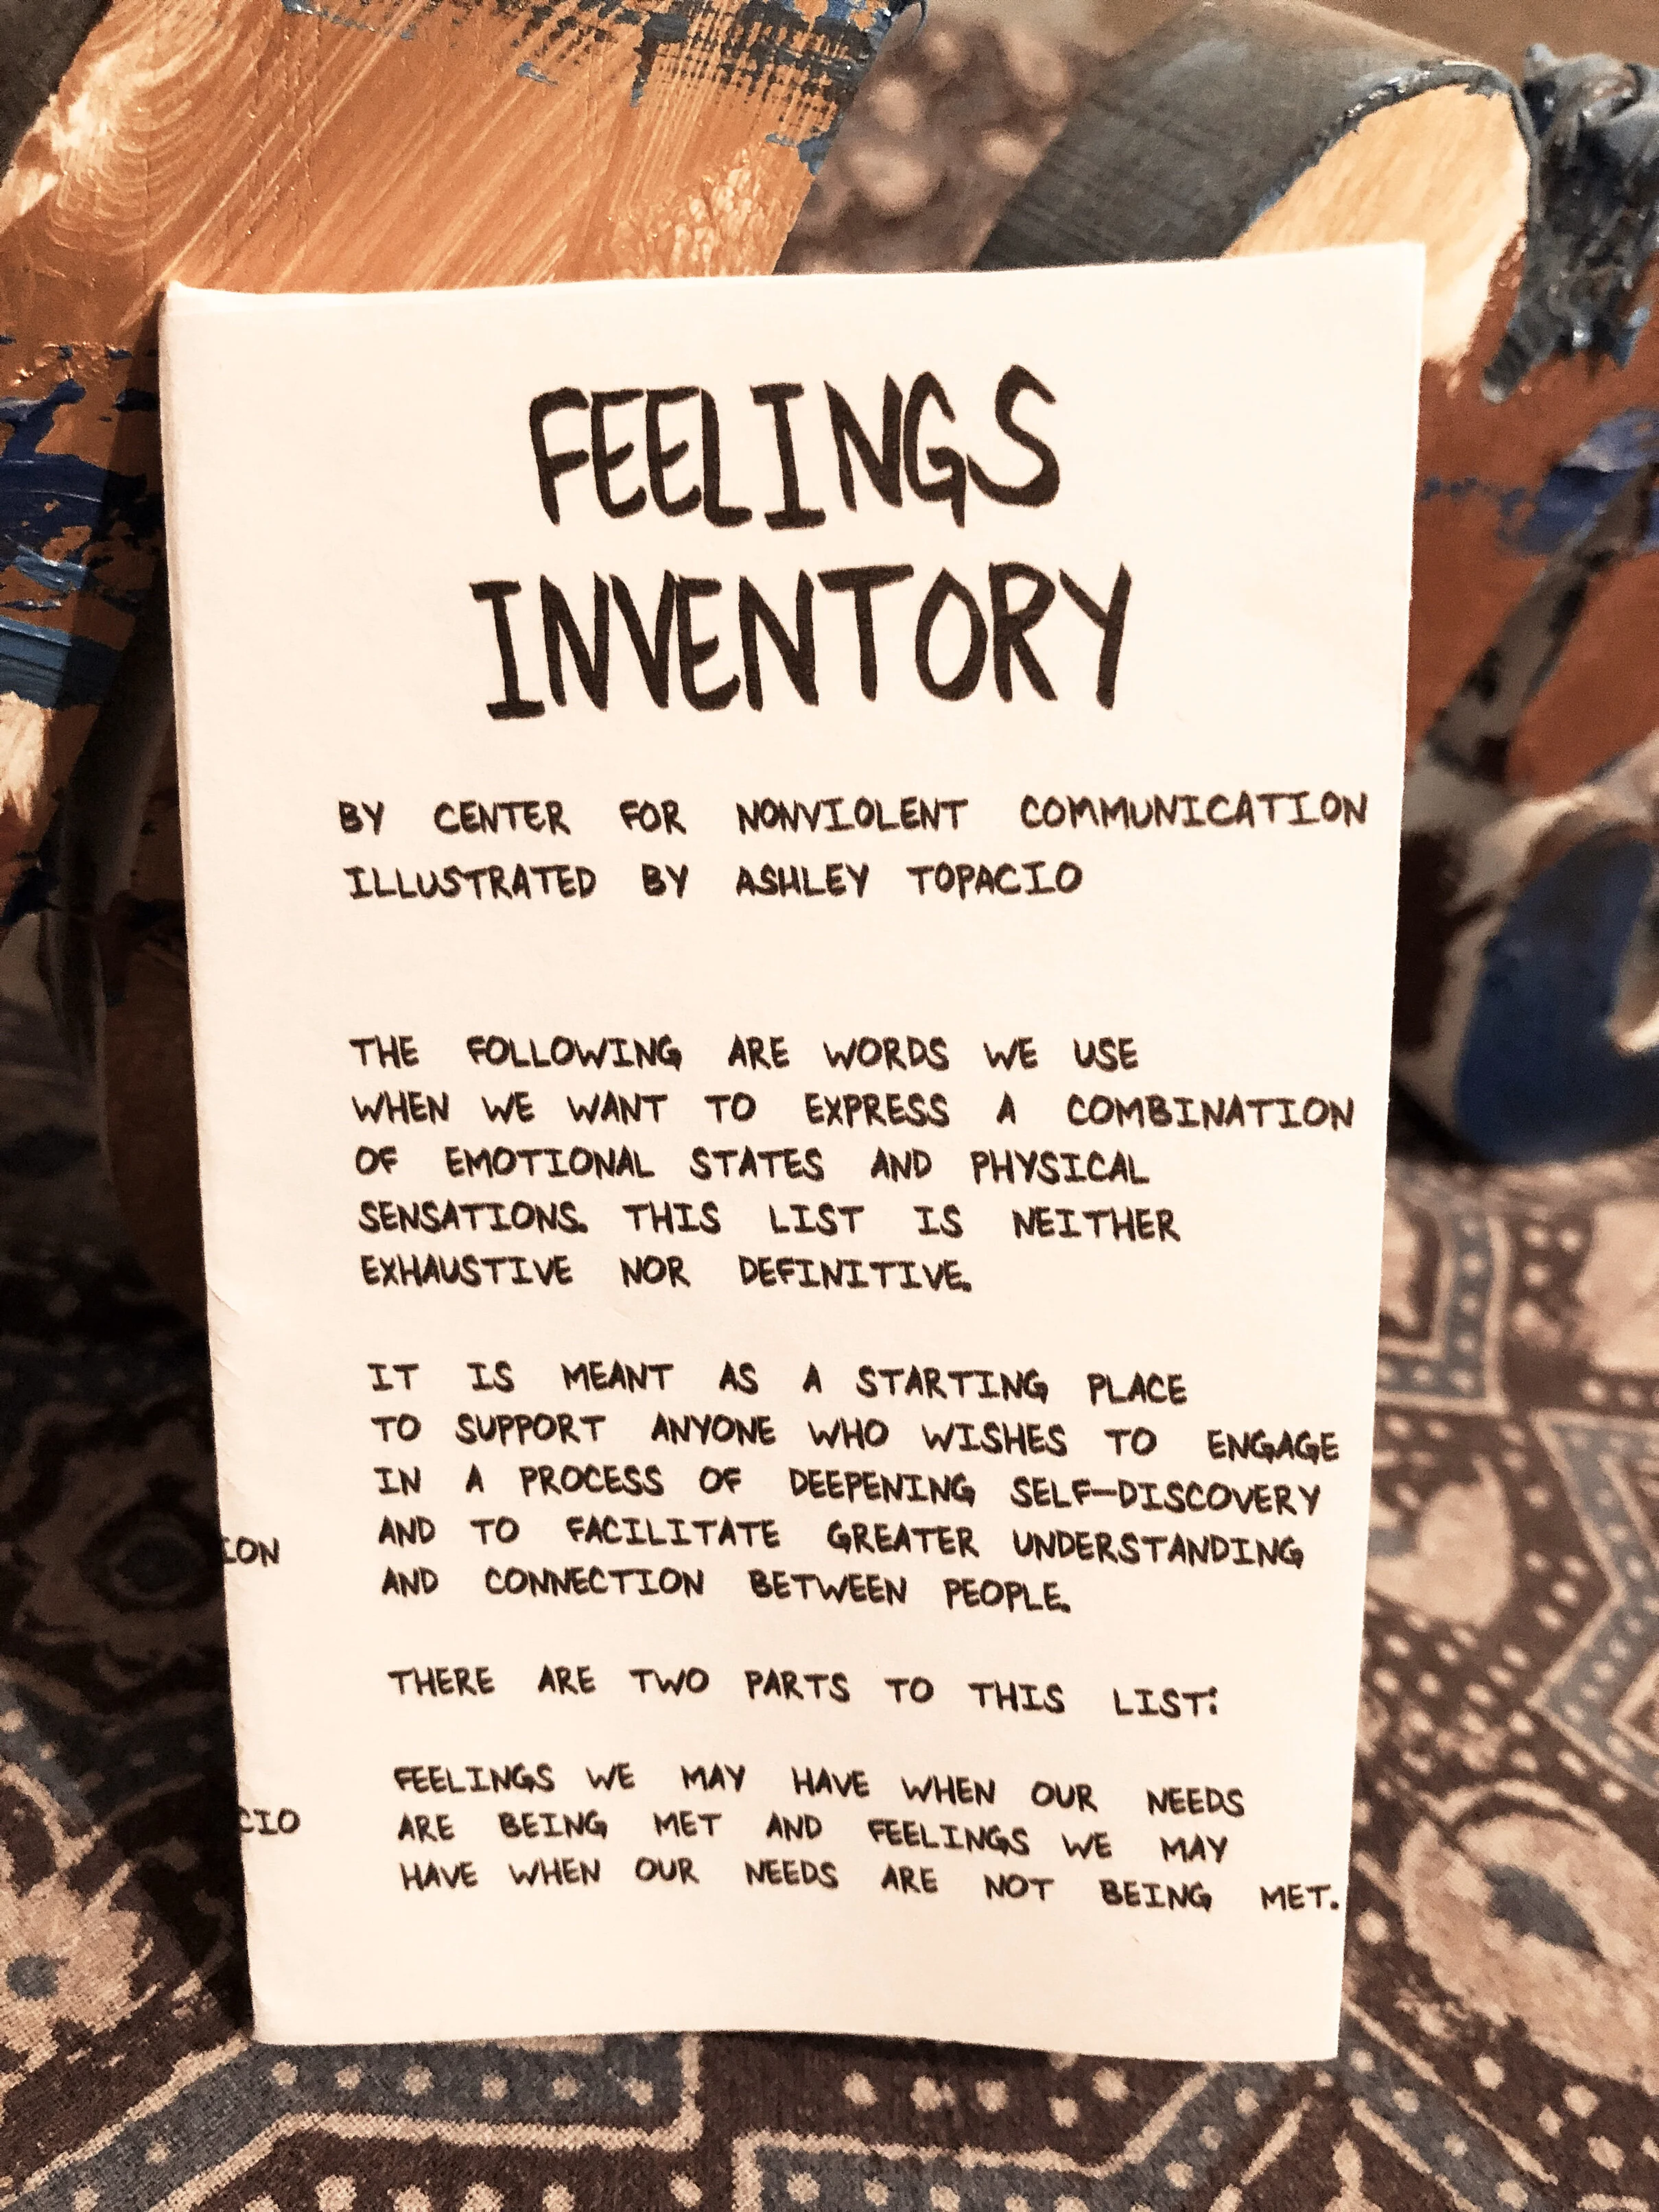 FEELINGS
INVENTORY
BY CENTER FOR NONVIOLENT COMMUNICATION
ILLUSTRATED BY ASHLEY TOPACIO
THE FOLLOWING ARE WORDS WE USE
WHEN WE WANT TO EXPRESS A COMBINATION
OF EMOTIONAL STATES AND PHYSICAL
SENSATIONS. THIS LIST IS NEITHER
EXHAUSTIVE NOR DEFINITIVE.
IT IS MEANT AS A STARTING PLACE
TO SUPPORT ANYONE WHO WISHES TO ENGAGE
IN A PROCESS OF DEEPENING SELF-DISCOVERY
AND TO FACILITATE GREATER UNDERSTANDING
AND CONNECTION BETWEEN PEOPLE.
THERE ARE TWO PARTS TO THIS LIST:
FEELINGS WE MAY HAVE WHEN OUR NEEDS
ARE BEING MET AND FEELINGS WE MAY
HAVE WHEN OUR NEEDS ARE NOT BEING MET.
ION
CIO